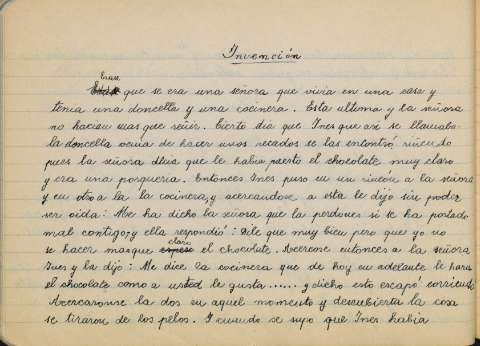 Invención
Erase
que se era una señora que vivia en una casa y
tenia una doncella y una cocinera. Esta ultima y la señora
no hacian mas que reñir. Cierto dia que Ines que asi se llamaba
la doncella venia de hacer unos recados se las encontró riñendo
pues la señora decia que le habia puesto el chocolate muy claro
y era una porqueria. Entonces Ines puso en un rincón a la señora
y en otro a la la cocinera, y acercandose a esta le dijo sin poder
ser oida: Me ha dicho la señora que la perdones si se ha portado
mal contigo; y ella respondió: Dile que muy bien pero que yo no
claro
se hacer mas que espeso el chocolate. Acercose entonces a la señora
Ines y la dijo: Me dice la cocinera que de hoy en adelante le hara
el chocolate como a usted le gusta...... y dicho esto escapó corriendo
Acercaronse la dos en aquel momento y descubierta la cosa
se tiraron de los pelos. Y cuando se supo que Ines habia